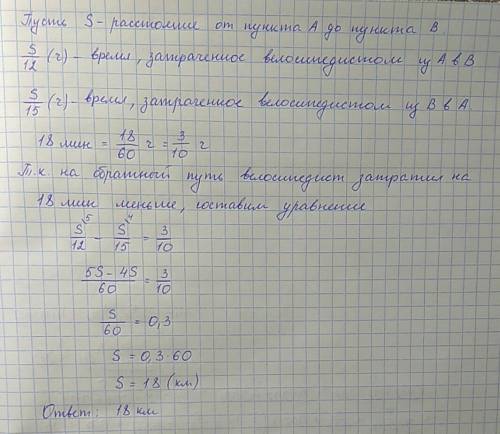 Пусть S - расстояние от пункта А до пункта В.
S/12 (г) - время, затраченное велосипедистом из А в В
S/15 (г) - время, затраченное велосипедистом из В в А.
18 мин = 18/60 г = 3/10 г
Т.к. на обратный путь велосипедист затратил на
18 мин меньше, составим уравнение
S\5/12 - S\4/15 = 3/10
5S - 4S/60 = 3/10
S/60 = 0,3
S = 0,3·60
S = 18 (км)
Ответ: 18 км